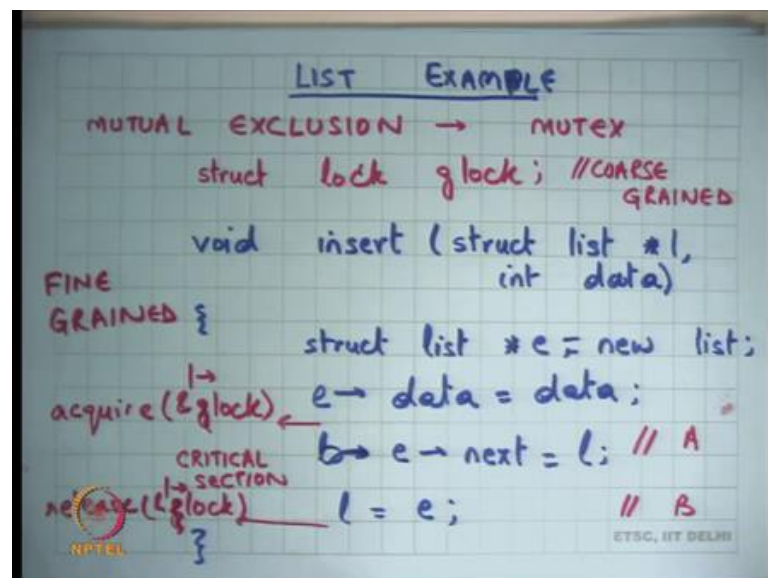 LIST EXAMPLE
MUTUAL EXCLUSION → MUTEX
struct lock glock; //COARSE
GRAINED
void insert (struct list *l,
int data)
FINE
GRAINED {
struct list *e = new list;
l→
acquire(&glock) e→ data = data;
e→ next = l; // A
CRITICAL
SECTION
l→
release(&glock) l = e; // B
}
NPTEL
ETSC, IIT DELHI